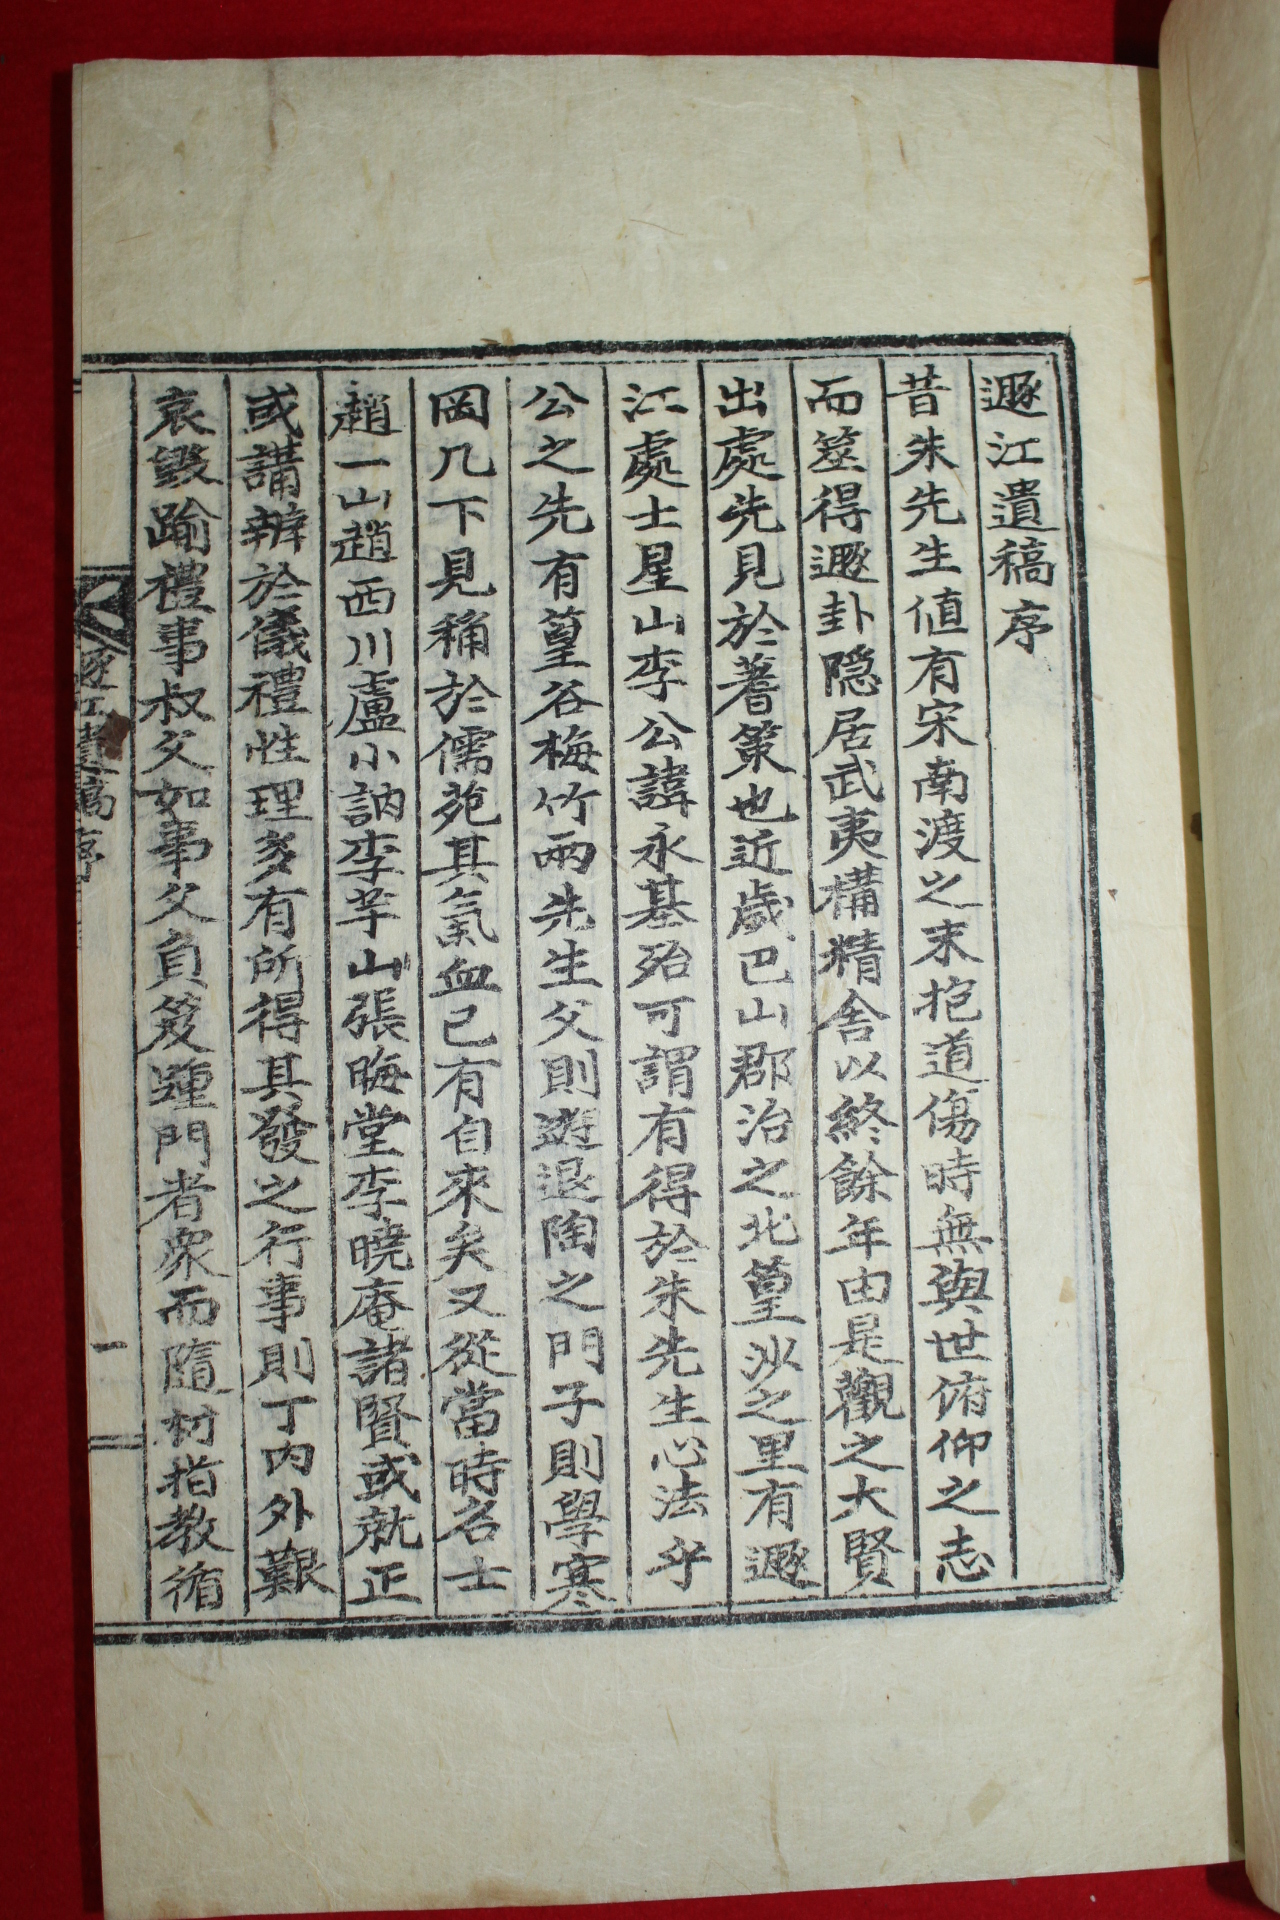 遯江遺稿序
昔朱先生値有宋南渡之末抱道傷時無與世俯仰之志
而筮得遯卦隱居武夷構精舍以終餘年由是觀之大賢
出處先見於蓍策也近歲巴山郡治之北篁沙之里有遯
江處士星山李公諱永基殆可謂有得於朱先生心法乎
公之先有篁谷梅竹兩先生父則遊退陶之門子則學寒
岡几下見稱於儒苑其氣血已有自來矣又從當時名士
趙一山趙西川盧小訥李芋山張晦堂李曉庵諸賢或就正
或講辨於儀禮性理多有所得其發之行事則丁內外艱
哀毀踰禮事叔父如事父負笈踵門者衆而隨材指教循
遯江遺稿序
一